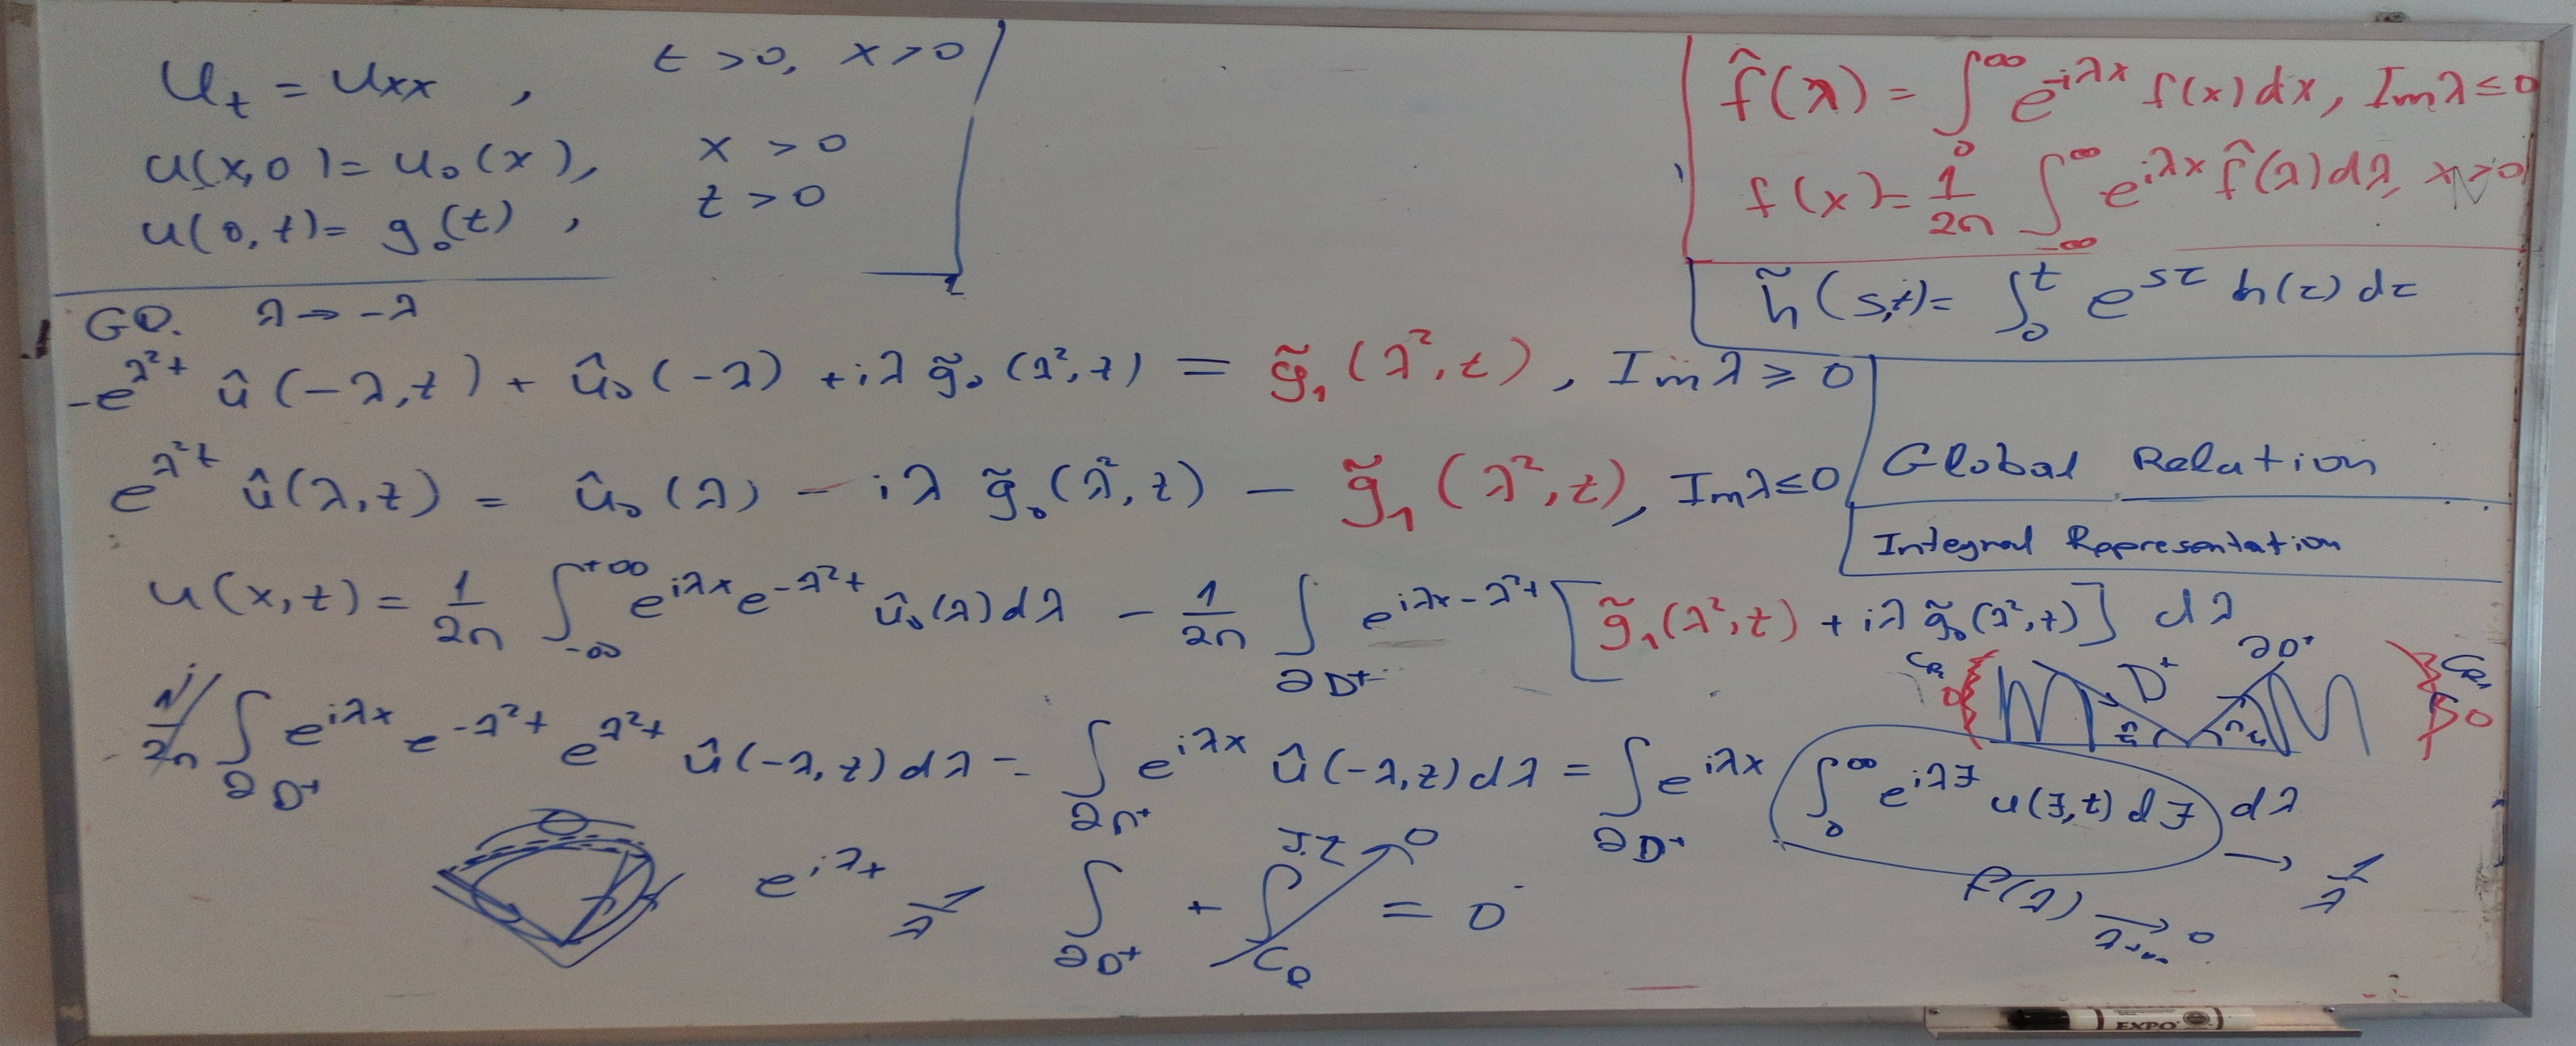 u_t = u_xx , t > 0, x > 0
u(x,0) = u₀(x), x > 0
u(0,t) = g₀(t) , t > 0
f̂(λ) = ∫₀^∞ e^{-iλx} f(x) dx, Imλ ≤ 0
f(x) = 1/2π ∫_{-∞}^{∞} e^{iλx} f̂(λ) dλ, x > 0
h̃(s,t) = ∫₀^t e^{sτ} h(τ) dτ
λ → -λ
-e^{λ²t} û(-λ,t) + û₀(-λ) + iλ g̃₀(λ²,t) = g̃₁(λ²,t), Imλ ≥ 0
e^{λ²t} û(λ,t) = û₀(λ) - iλ g̃₀(λ²,t) - g̃₁(λ²,t), Imλ ≤ 0
Global Relation
Integral Representation
u(x,t) = 1/2π ∫_{-∞}^{+∞} e^{iλx} e^{-λ²t} û₀(λ) dλ - 1/2π ∫_{∂D⁺} e^{iλx-λ²t} [g̃₁(λ²,t) + iλ g̃₀(λ²,t)] dλ
C_R D⁺ ∂D⁺ C_R
0 π/4 π/4 0
1/2π ∫_{∂D⁺} e^{iλx} e^{-λ²t} e^{λ²t} û(-λ,t) dλ = ∫_{∂D⁺} e^{iλx} û(-λ,t) dλ = ∫_{∂D⁺} e^{iλx} ∫₀^∞ e^{iλξ} u(ξ,t) dξ dλ
→ 1/λ
e^{iλt} 1/λ ∫_{∂D⁺} + ∫_{C_R} = 0
J.L → 0
f(λ) → 0
λ→∞
EXPO